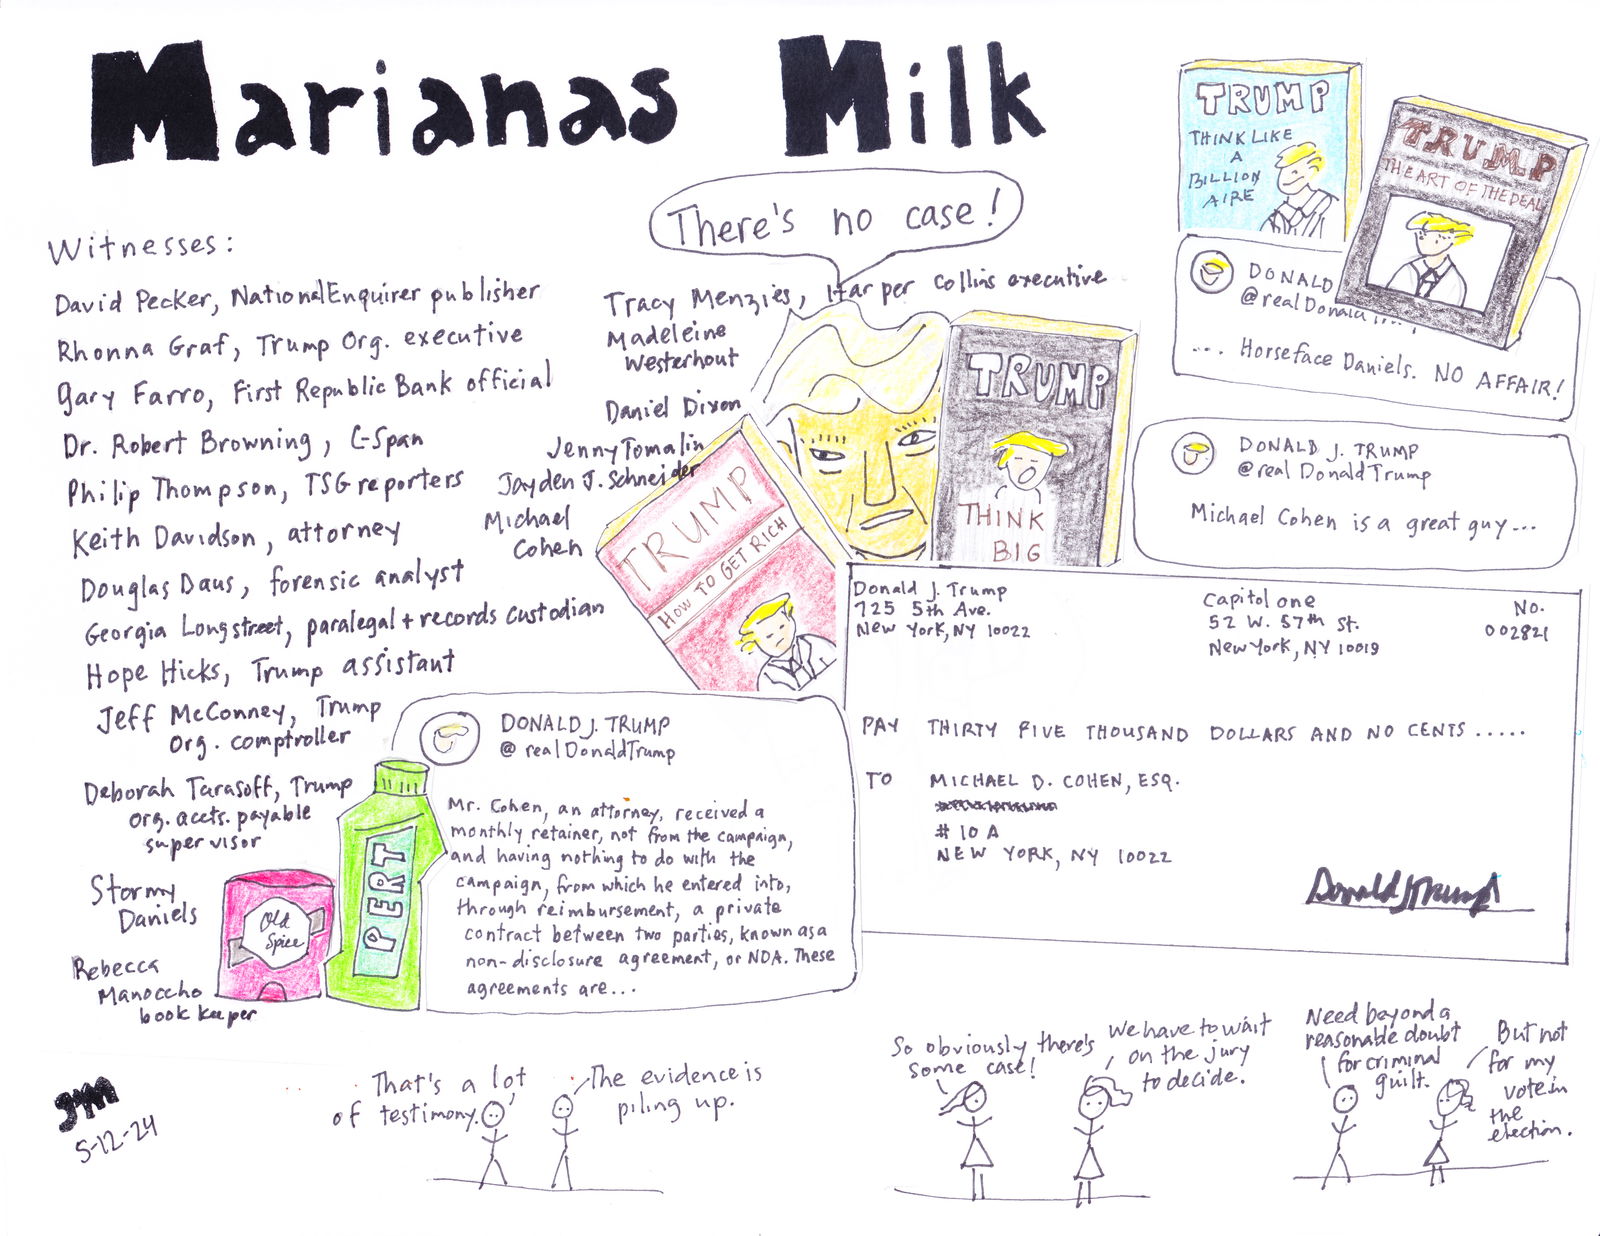 Marianas Milk
There's no case!
Witnesses:
David Pecker, National Enquirer publisher
Rhonna Graf, Trump Org. executive
Gary Farro, First Republic Bank official
Dr. Robert Browning, C-Span
Philip Thompson, TSG reporters
Keith Davidson, attorney
Douglas Daus, forensic analyst
Georgia Longstreet, paralegal + records custodian
Hope Hicks, Trump assistant
Jeff McConney, Trump
Org. comptroller
Deborah Tarasoff, Trump
org. accts. payable
supervisor
Stormy
Daniels
Rebecca
Manoccho
bookkeeper
Tracy Menzies, Harper Collins executive
Madeleine
Westerhout
Daniel Dixon
Jenny Tomalin
Jayden J. Schneider
Michael
Cohen
TRUMP
HOW TO GET RICH
TRUMP
THINK
BIG
TRUMP
THINK LIKE
A
BILLION
AIRE
TRUMP
THE ART OF THE DEAL
DONALD
@realDonald
... Horseface Daniels. NO AFFAIR!
DONALD J. TRUMP
@realDonaldTrump
Michael Cohen is a great guy...
Donald J. Trump
725 5th Ave.
New York, NY 10022
Capitol one
52 W. 57th St.
New York, NY 10019
No.
002821
PAY THIRTY FIVE THOUSAND DOLLARS AND NO CENTS.....
TO MICHAEL D. COHEN, ESQ.
# 10 A
NEW YORK, NY 10022
Donald J Trump
DONALD J. TRUMP
@realDonaldTrump
Mr. Cohen, an attorney, received a
monthly retainer, not from the campaign,
and having nothing to do with the
campaign, from which he entered into,
through reimbursement, a private
contract between two parties, known as a
non-disclosure agreement, or NDA. These
agreements are...
Old
Spice
PERT
JM
5-12-24
That's a lot
of testimony.
The evidence is
piling up.
So obviously there's
some case!
We have to wait
on the jury
to decide.
Need beyond a
reasonable doubt
for criminal
guilt.
But not
for my
vote in
the
election.